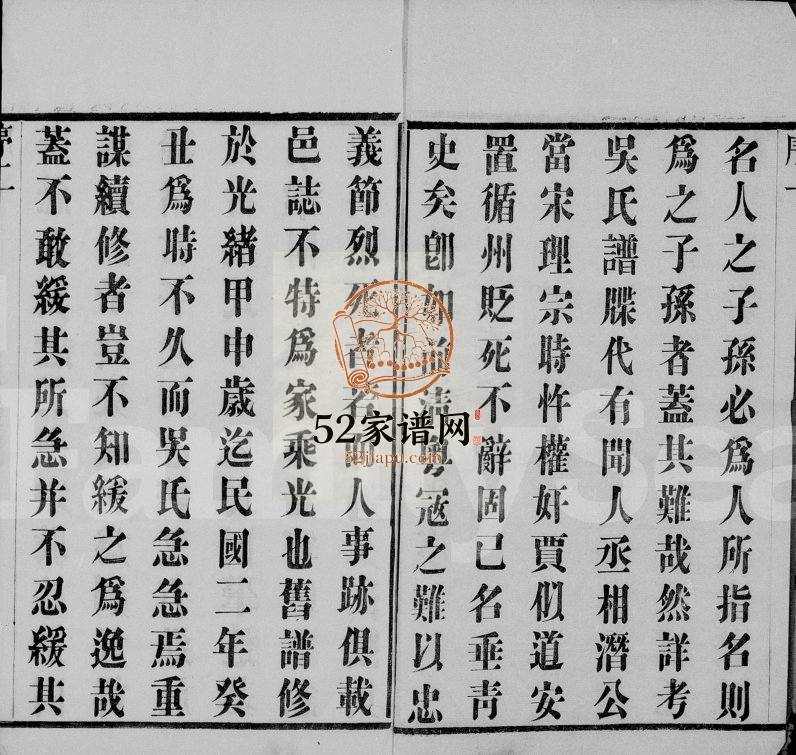 名人之子孫必爲人所指名則
爲之子孫者蓋共難哉然詳考
吳氏譜牒代有聞人丞相潛公
當宋理宗時忤權奸賈似道安
置循州貶死不辭固已名垂青
史矣卽如前清粵冦之難以忠
義節烈死者若而人事跡俱載
邑誌不特爲家乘光也舊譜修
於光緒甲申歲迄民國二年癸
丑爲時不久而吳氏急急焉重
謀續修者豈不知緩之爲逸哉
蓋不敢緩其所急并不忍緩其
52家谱网
52jiapu.com
FamilySea